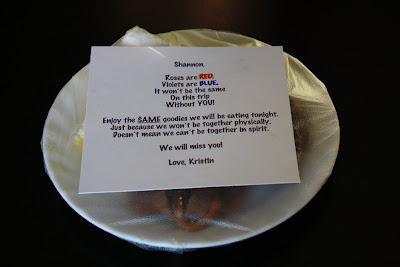 Shannon,
Roses are RED,
Violets are BLUE,
It won't be the same
On this trip
Without YOU!
Enjoy the SAME goodies we will be eating tonight.
Just because we won't be together physically,
Doesn't mean we can't be together in spirit.
We will miss you!
Love, Kristin